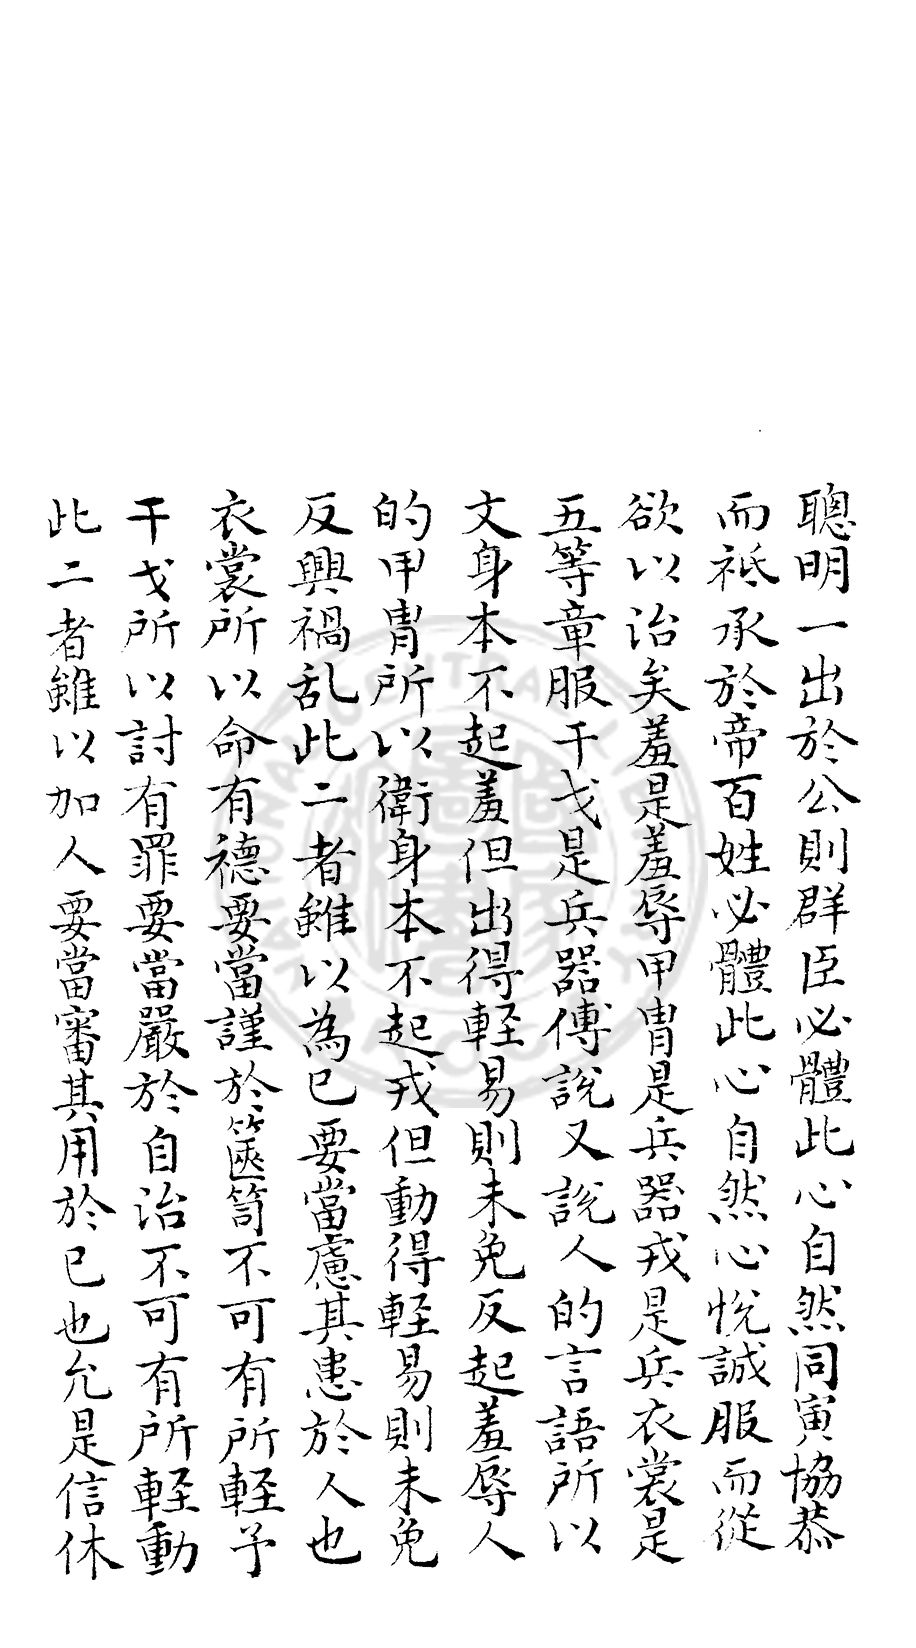 聰明一出於公則群臣必體此心自然同寅協恭
而祗承於帝百姓必體此心自然心悅誠服而從
欲以治矣羞是羞辱甲冑是兵器戎是兵衣裳是
五等章服干戈是兵器傅說又說人的言語所以
文身本不起羞但出得輕易則未免反起羞辱人
的甲冑所以衛身本不起戎但動得輕易則未免
反興禍乱此二者雖以為已要當慮其患於人也
衣裳所以命有德要當謹於篋笥不可有所輕予
干戈所以討有罪要當嚴於自治不可有所輕動
此二者雖以加人要當審其用於已也允是信休